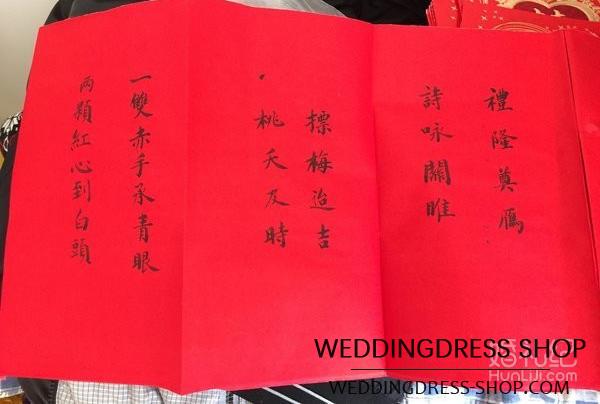 禮隆奠鴈
詩咏關雎
摽梅迨吉
桃夭及時
一雙赤手承青眼
两顆紅心到白頭
WEDDINGDRESS SHOP
婚礼纪
HunLiJi.com
WEDDINGDRESS-SHOP.COM